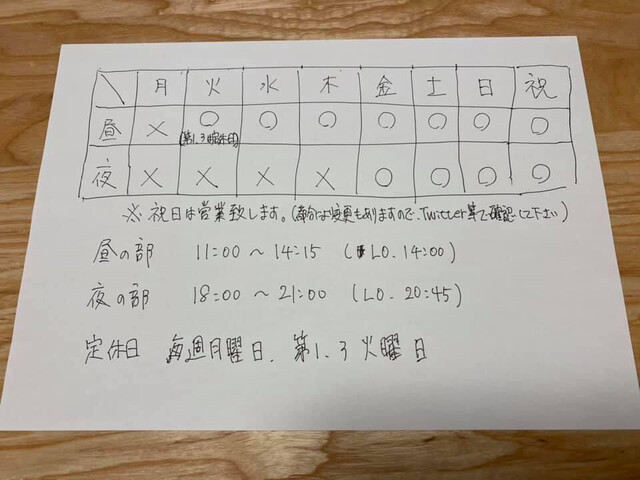 月 火 水 木 金 土 日 祝
昼 × ○ ○ ○ ○ ○ ○ ○
(第1.3定休日)
夜 × × × × ○ ○ ○ ○
※祝日は営業致します。(都合により変更もありますので、Twitter等で確認して下さい)
昼の部 11:00 〜 14:15 (LO. 14:00)
夜の部 18:00 〜 21:00 (LO. 20:45)
定休日 毎週月曜日、第1.3火曜日